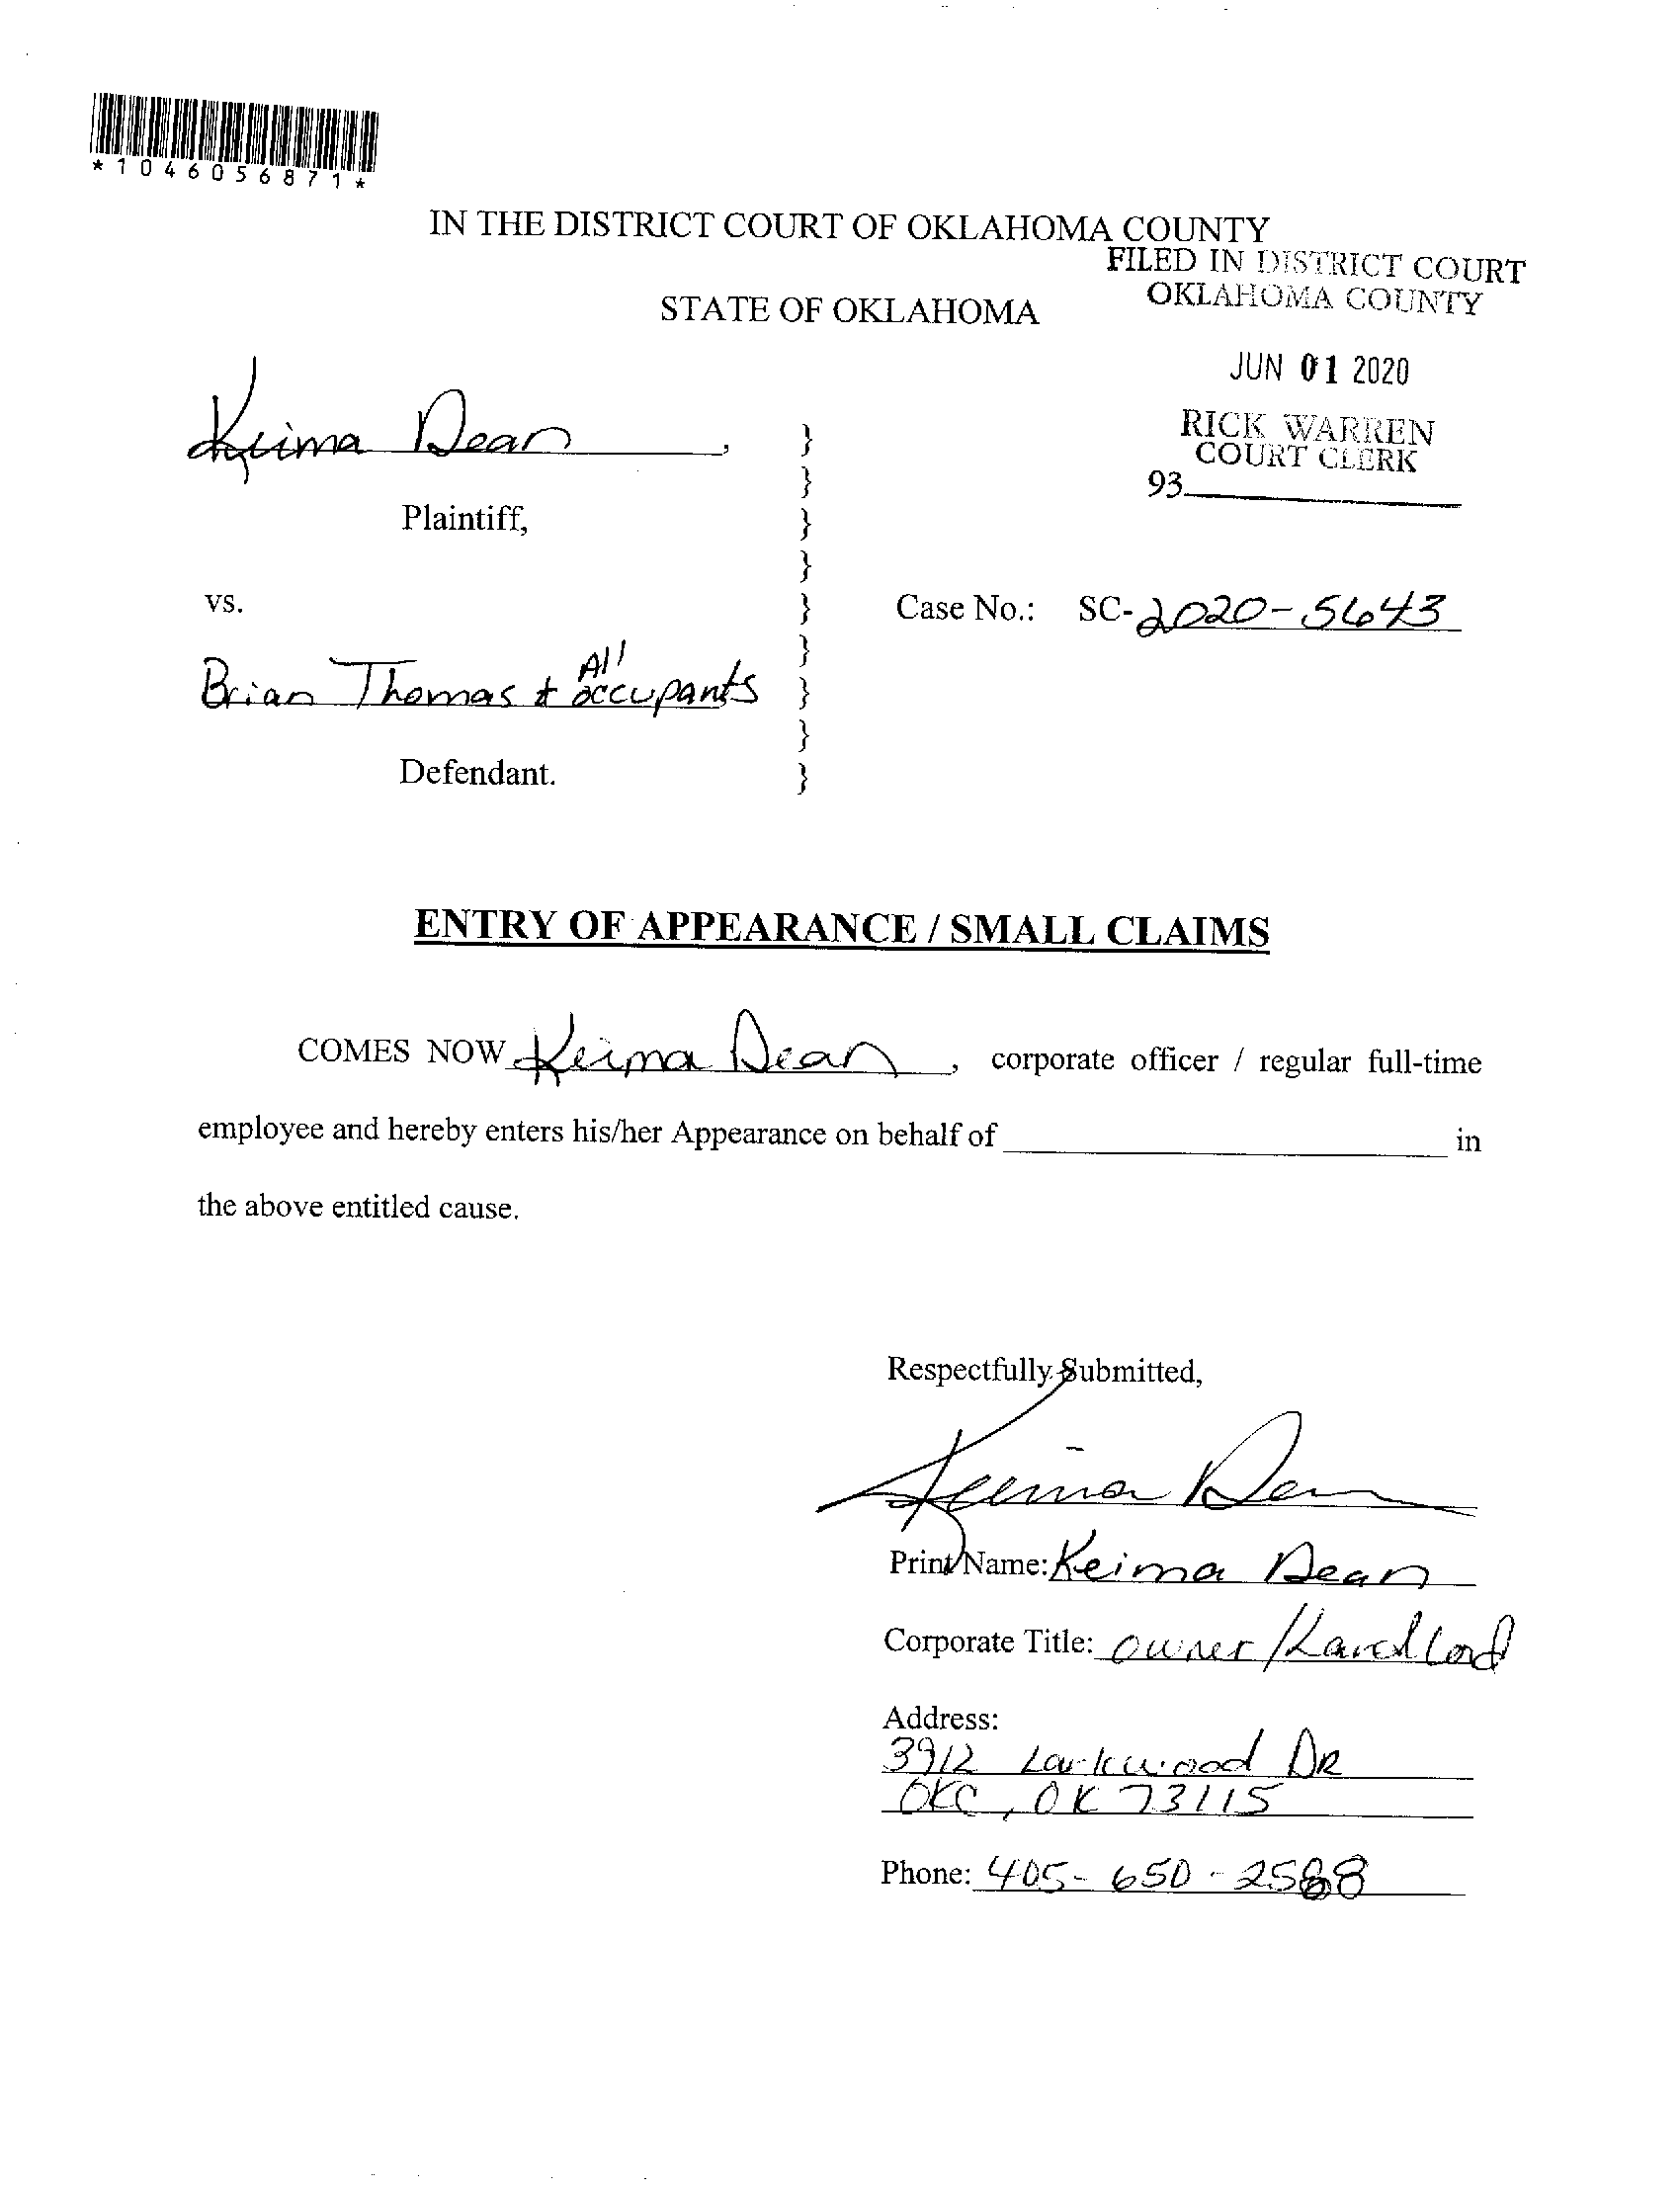 *1046056871*
IN THE DISTRICT COURT OF OKLAHOMA COUNTY
FILED IN DISTRICT COURT
OKLAHOMA COUNTY
STATE OF OKLAHOMA
JUN 01 2020
RICK WARREN
COURT CLERK
93
Keima Dean,
}
}
Plaintiff, }
}
vs. } Case No.: SC-2020-5643
}
Brian Thomas + All occupants }
}
Defendant. }
ENTRY OF APPEARANCE / SMALL CLAIMS
COMES NOW Keima Dean, corporate officer / regular full-time
employee and hereby enters his/her Appearance on behalf of in
the above entitled cause.
Respectfully Submitted,
Keima Dean
Print Name: Keima Dean
Corporate Title: owner/Landlord
Address:
3912 Larkwood DR
OKC, OK 73115
Phone: 405-650-2588